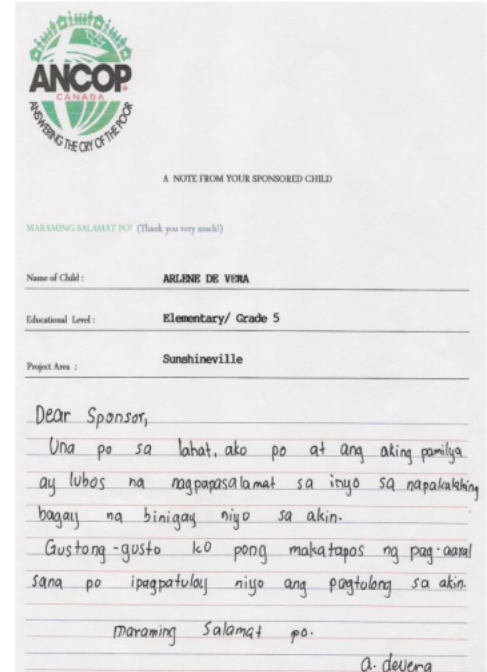 ANCOP
CANADA
ANSWERING THE CRY OF THE POOR
A NOTE FROM YOUR SPONSORED CHILD
MARAMING SALAMAT PO! (Thank you very much!)
Name of Child : ARLENE DE VERA
Educational Level : Elementary/ Grade 5
Project Area : Sunshineville
Dear Sponsor,
Una po sa lahat, ako po at ang aking pamilya
ay lubos na nagpapasalamat sa inyo sa napakalaking
bagay na binigay niyo sa akin.
Gustong-gusto ko pong makatapos ng pag-aaral
sana po ipagpatuloy niyo ang pagtulong sa akin.
Maraming Salamat po.
a. devera